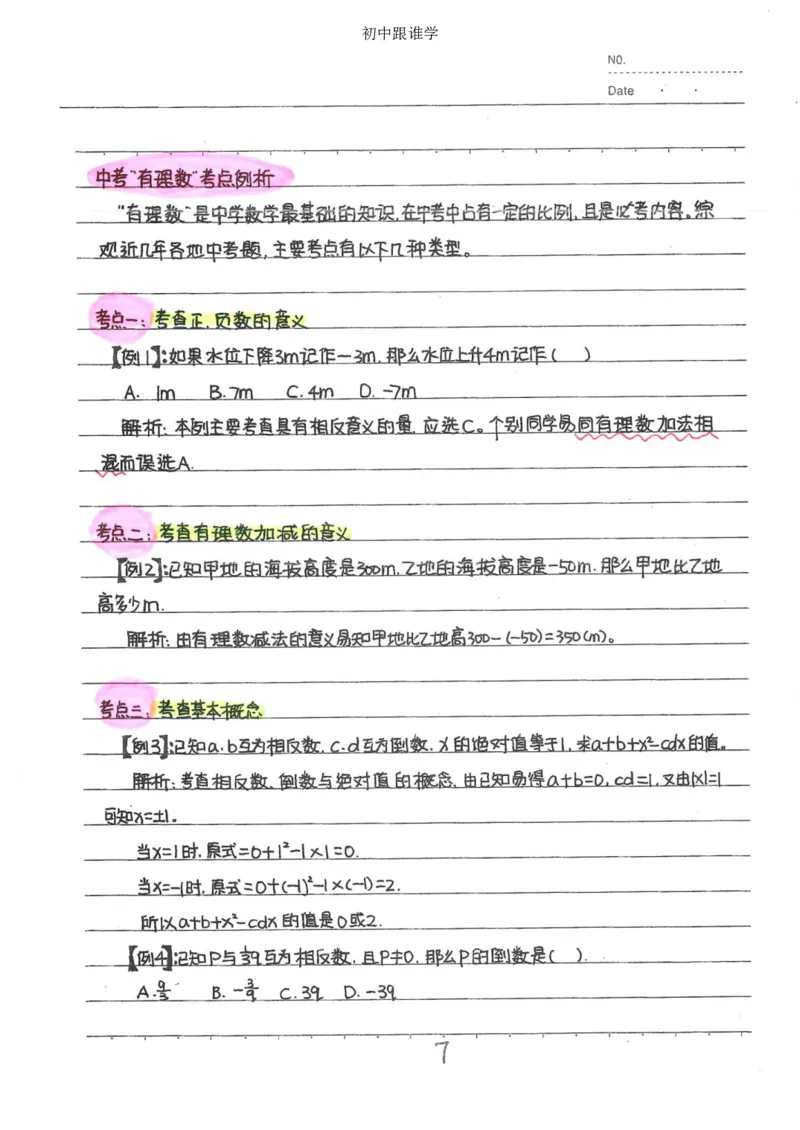 初中跟谁学
NO.
Date
中考"有理数"考点例析
"有理数"是中学数学最基础的知识,在中考中占有一定的比例,且是必考内容。综
观近几年各地中考题,主要考点有以下几种类型。
考点一:考查正、负数的意义
【例1】:如果水位下降3m记作-3m,那么水位上升4m记作( )
A. 1m B.7m C.4m D.-7m
解析:本例主要考查具有相反意义的量,应选C。个别同学易同有理数加法相
混而误选A.
考点二:考查有理数加减的意义
【例2】:已知甲地的海拔高度是300m,乙地的海拔高度是-50m.那么甲地比乙地
高多少m.
解析:由有理数减法的意义易知甲地比乙地高300-(-50)=350(m)。
考点三:考查基本概念
【例3】:已知a.b互为相反数,c.d互为倒数,x的绝对值等于1,求a+b+x²-cdx的值。
解析:考查相反数、倒数与绝对值的概念、由已知易得a+b=0,cd=1,又由|x|=1
可知x=±1。
当x=1时,原式=0+1²-1×1=0.
当x=-1时,原式=0+(-1)²-1×(-1)=2.
所以a+b+x²-cdx的值是0或2.
【例4】:已知P与
互为相反数,且P≠0.那么P的倒数是( ).
C.39 D.-39
7